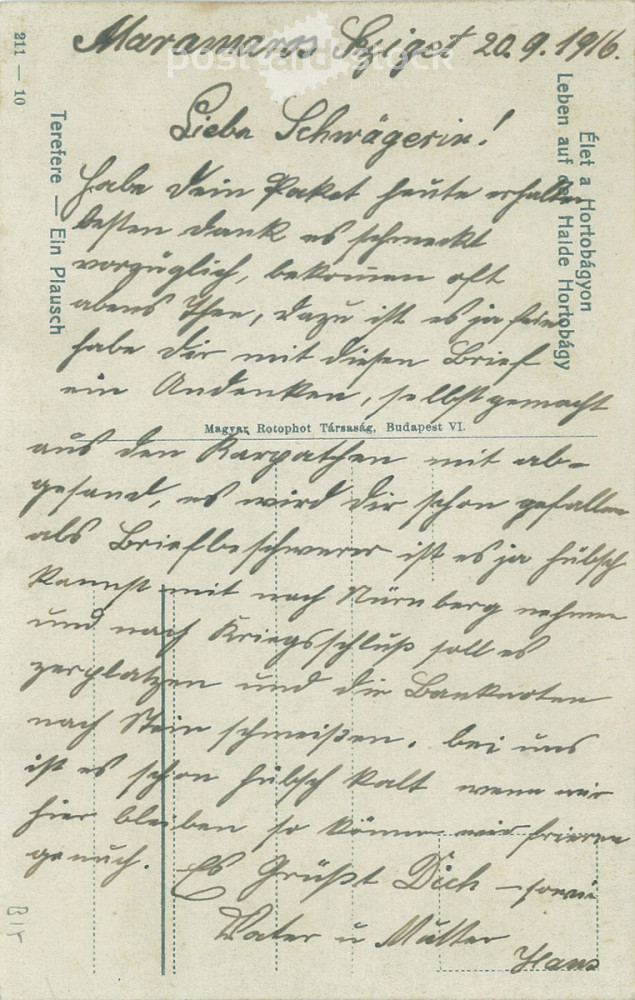 Maramaros Sziget 20.9.1916.
Liebe Schwägerin!
habe dein Paket heute erhalten
besten Dank es schmeckt
vorzüglich, bekomen oft
abens Thee, dazu ist es ja fein
habe dir mit diesen Brief
ein Andenken, selbstgemacht
aus den Karpathen mit ab-
gesand, es wird dir schon gefallen
als Briefbeschwerer ist es ja hübsch
kannst mit nach Nürnberg nehmen
und nach Kriegsschluß soll es
zerplatzen und die Banknoten
nach Stein schmeißen. bei uns
ist es schon hübsch kalt wenn wir
hier bleiben so könne wir frieren
genuch. Es Grüßt Dich sowie
Vater u Mutter
Hans
211 — 10
Terefere — Ein Plausch
Élet a Hortobágyon
Leben auf der Haide Hortobágy
Magyar Rotophot Társaság, Budapest VI.
postcard stock